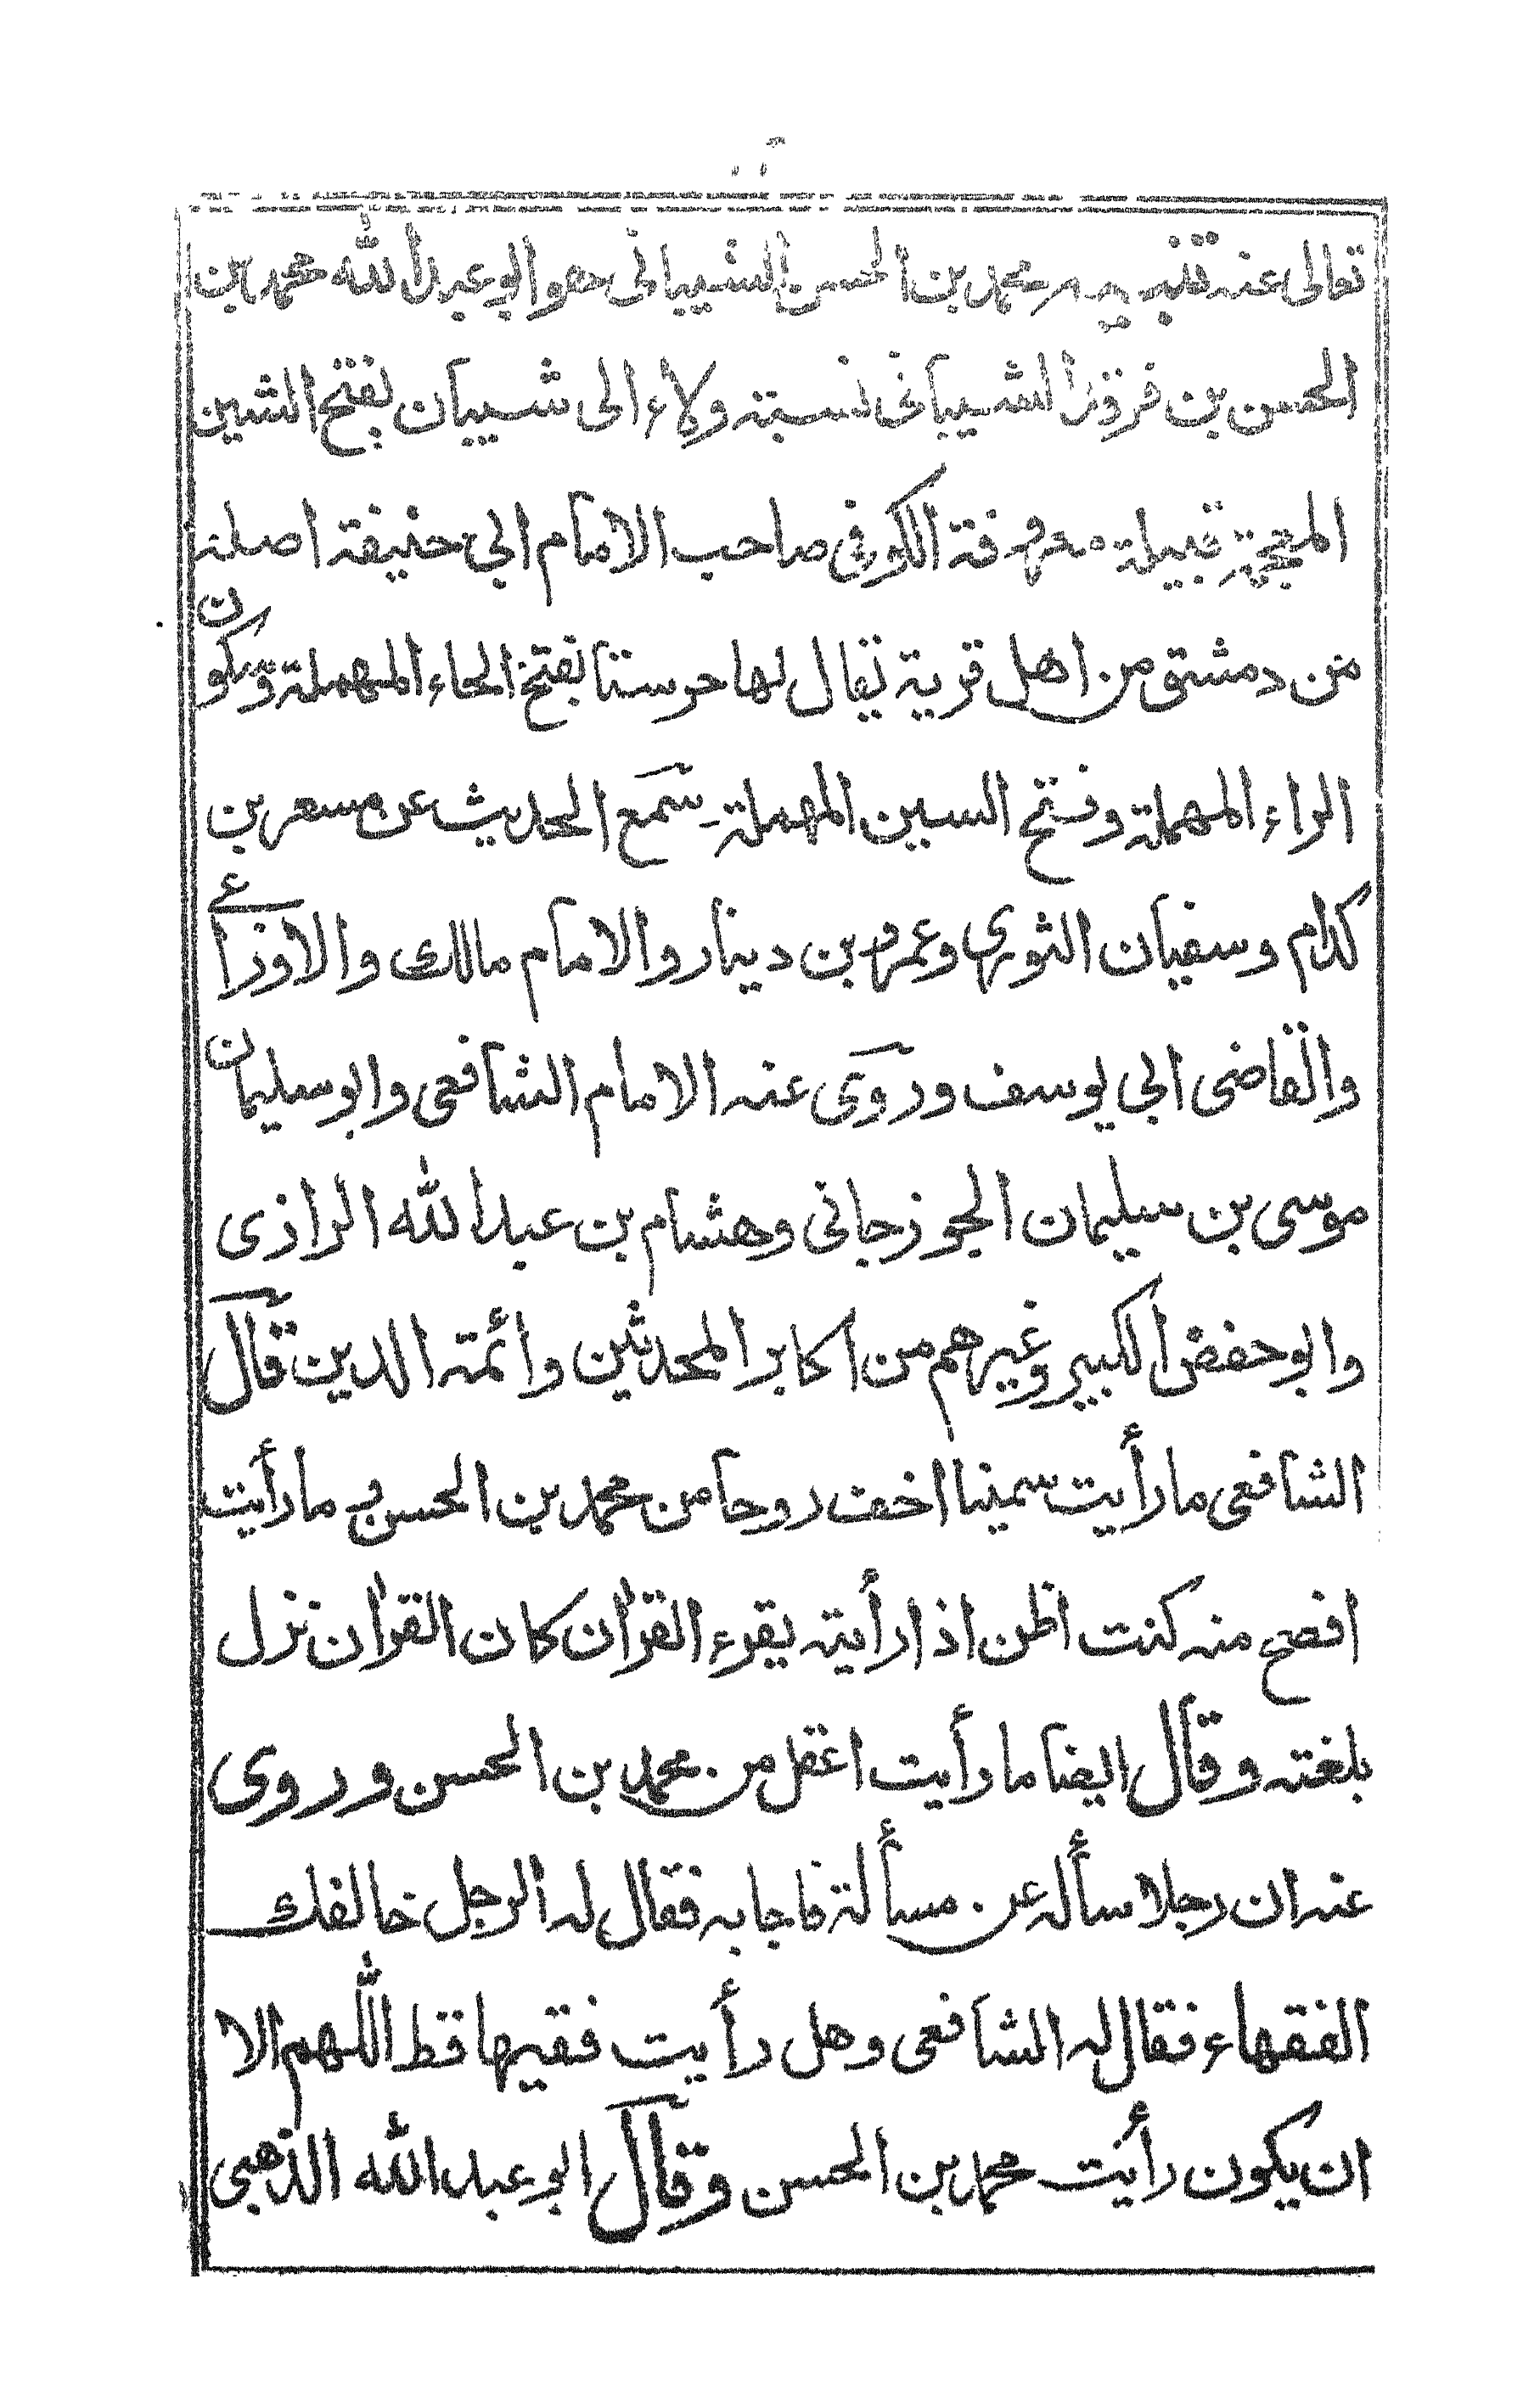 تعالى عنه محمد بن الحسن الشيبانى هو ابو عبد الله محمد بن
الحسن بن فرقد الشيبانى نسبته ولاء الى شيبان بفتح الشين
المعجمة قبيلة معروفة الكوفى صاحب الامام ابى حنيفة اصله
من دمشق من اهل قرية يقال لها حرستا بفتح الحاء المهملة وسكون
الراء المهملة وفتح السين المهملة سمع الحديث عن مسعر بن
كدام وسفيان الثورى وعمرو بن دينار والامام مالك والاوزاعى
والقاضى ابى يوسف وروى عنه الامام الشافعى وابو سليمان
موسى بن سليمان الجوزجانى وهشام بن عبد الله الرازى
وابو حفص الكبير وغيرهم من اكابر المحدثين وائمة الدين قال
الشافعى ما رأيت سمينا اخف روحا من محمد بن الحسن و ما رأيت
افصح منه كنت اظن اذا رأيته يقرء القرآن كان القرآن نزل
بلغته وقال ايضا ما رأيت اعقل من محمد بن الحسن وروى
عنه ان رجلا سأله عن مسألة فاجابه فقال له الرجل خالفك
الفقهاء فقال له الشافعى وهل رأيت فقيها قط اللهم الا
ان يكون رأيت محمد بن الحسن وقال ابو عبد الله الذهبى